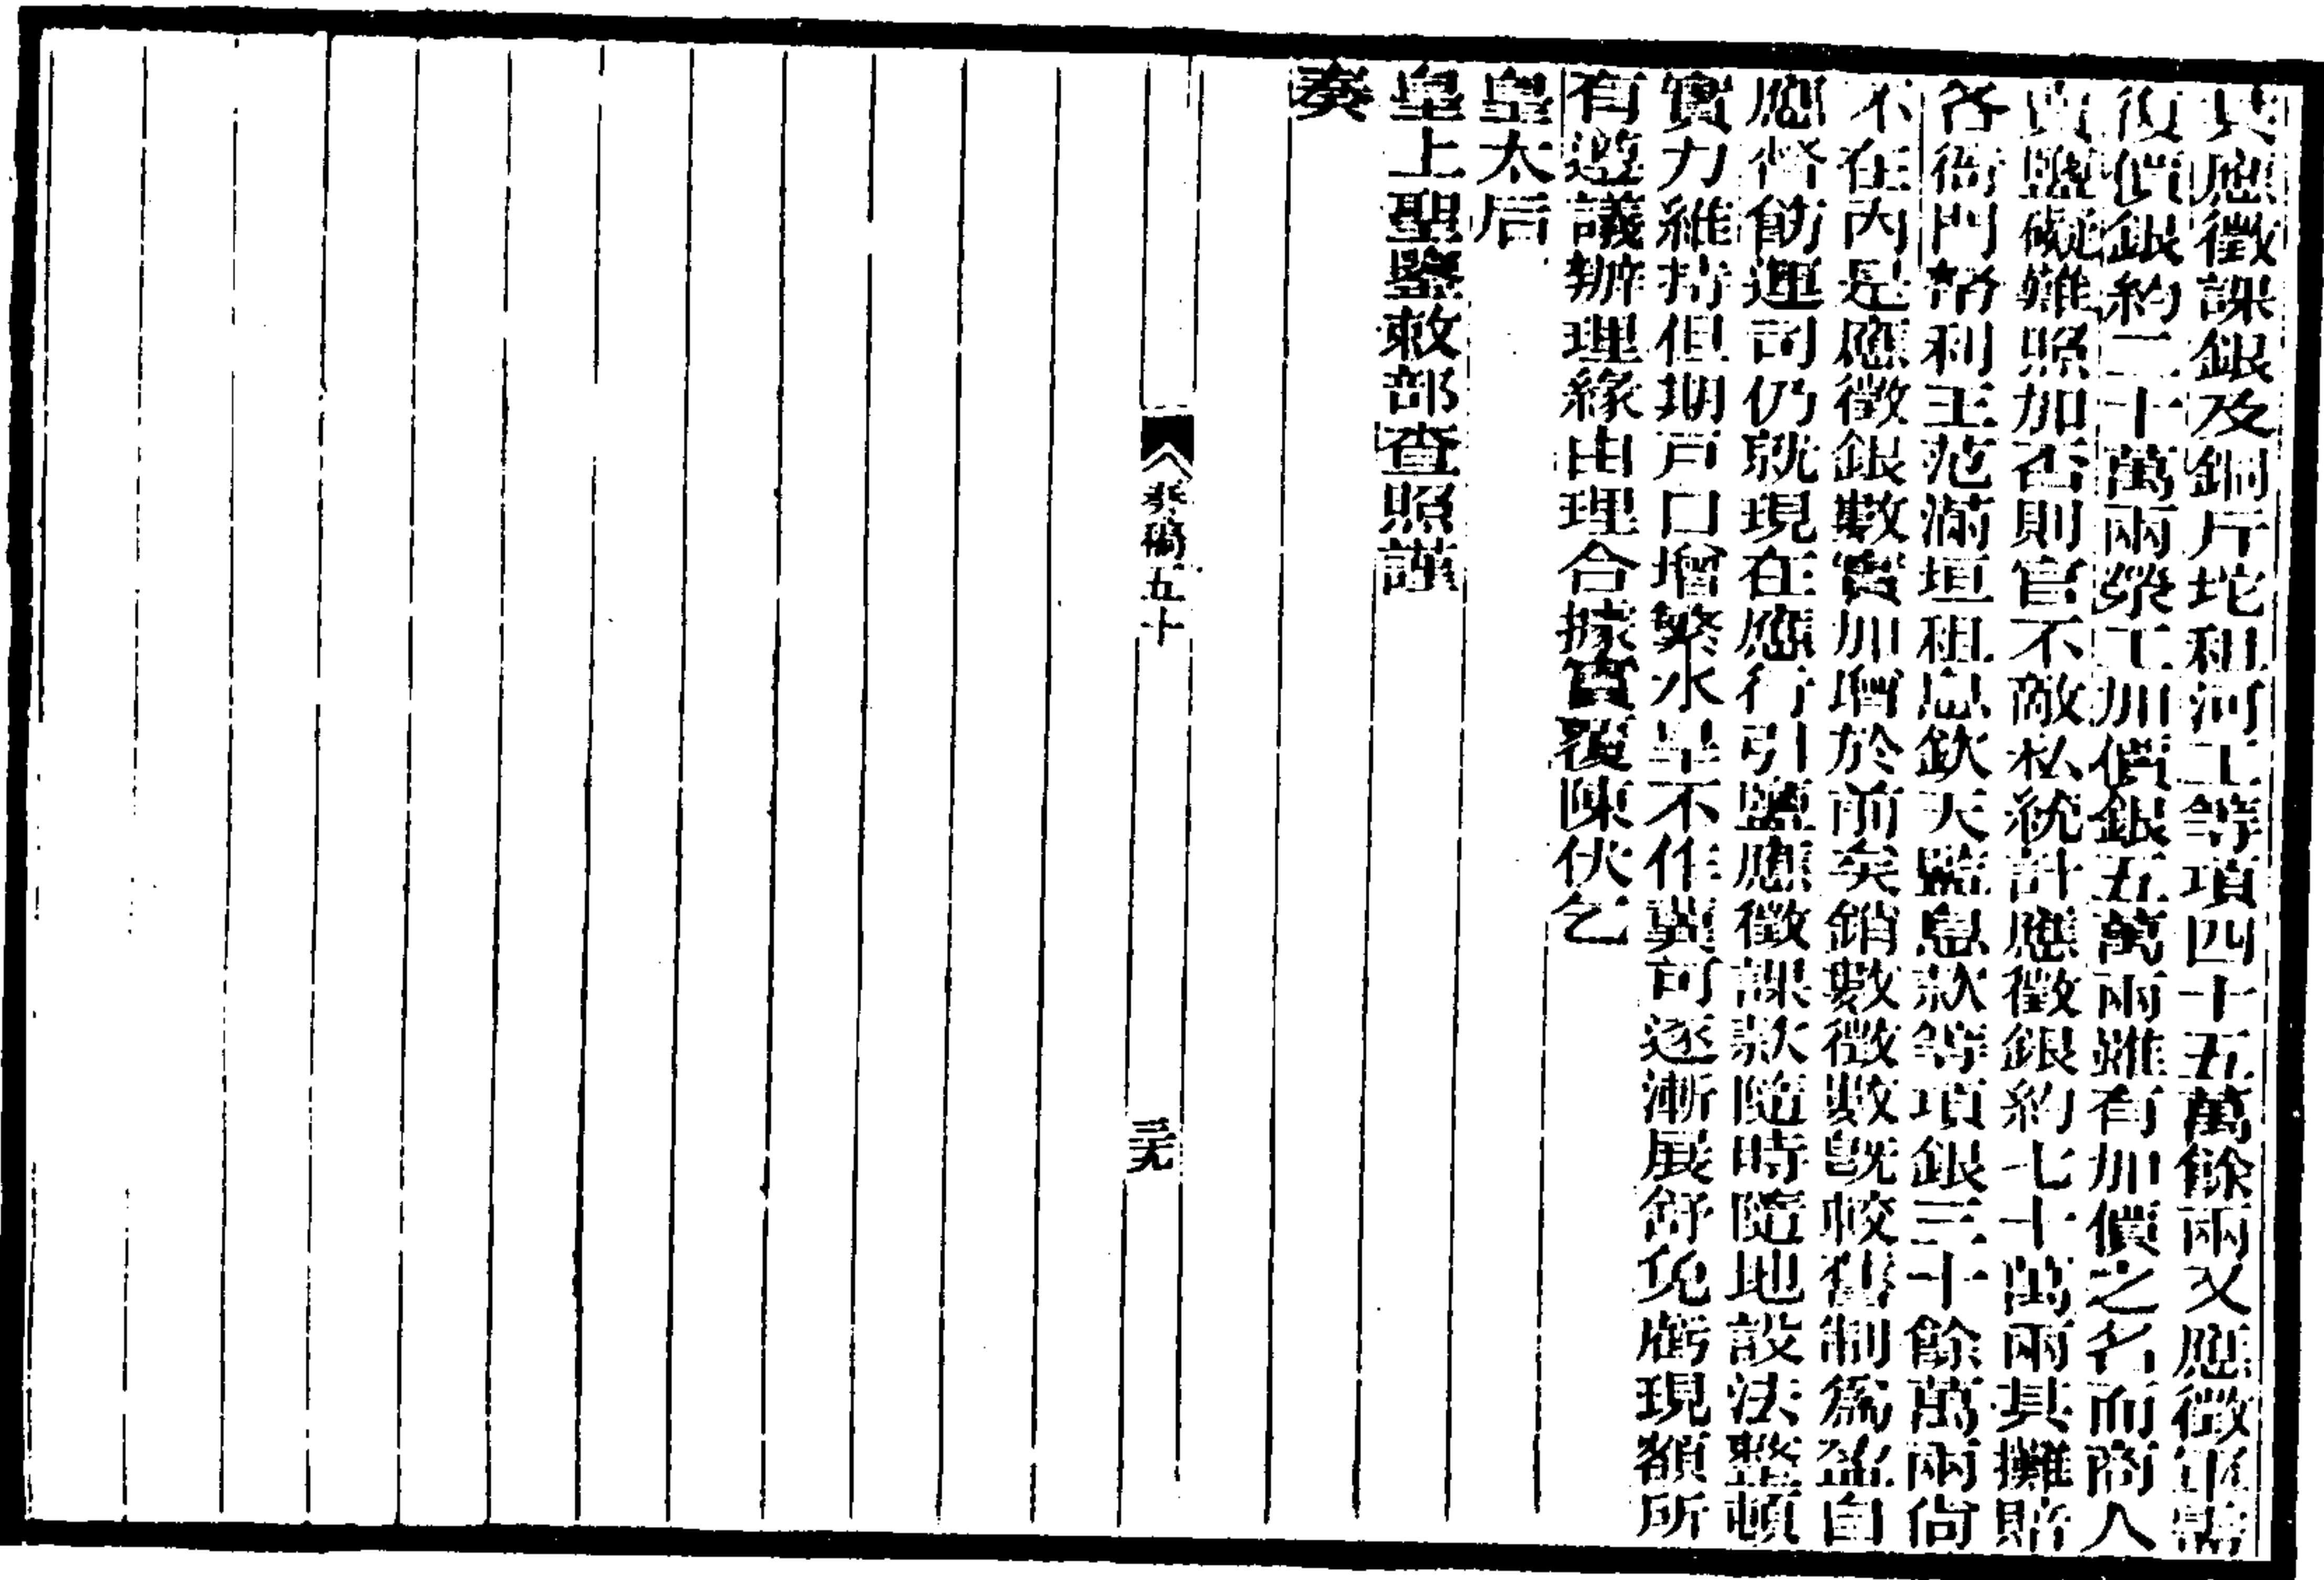 其應徵課銀及銅斤坨租河工等項四十五萬餘兩又應徵軍需
復價銀約二十萬兩滎工加價銀五萬兩雖有加價之名而商人
賣鹽礙難照加否則官不敵私統計應徵銀約七十萬兩其攤賠
各衙門帑利王范滿垣租息欽天監息款等項銀三十餘萬兩尙
不在內是應徵銀數實加增於前矣銷數徵數旣較舊制爲盈自
應督飭運司仍就現在應行引鹽應徵課款隨時隨地設法整頓
實力維持但期戶口增繁水旱不作冀可逐漸展舒免虧現額所
有遵議辦理緣由理合據實覆陳伏乞
皇太后
皇上聖鑒敕部查照謹
奏
奏稿五十
三九